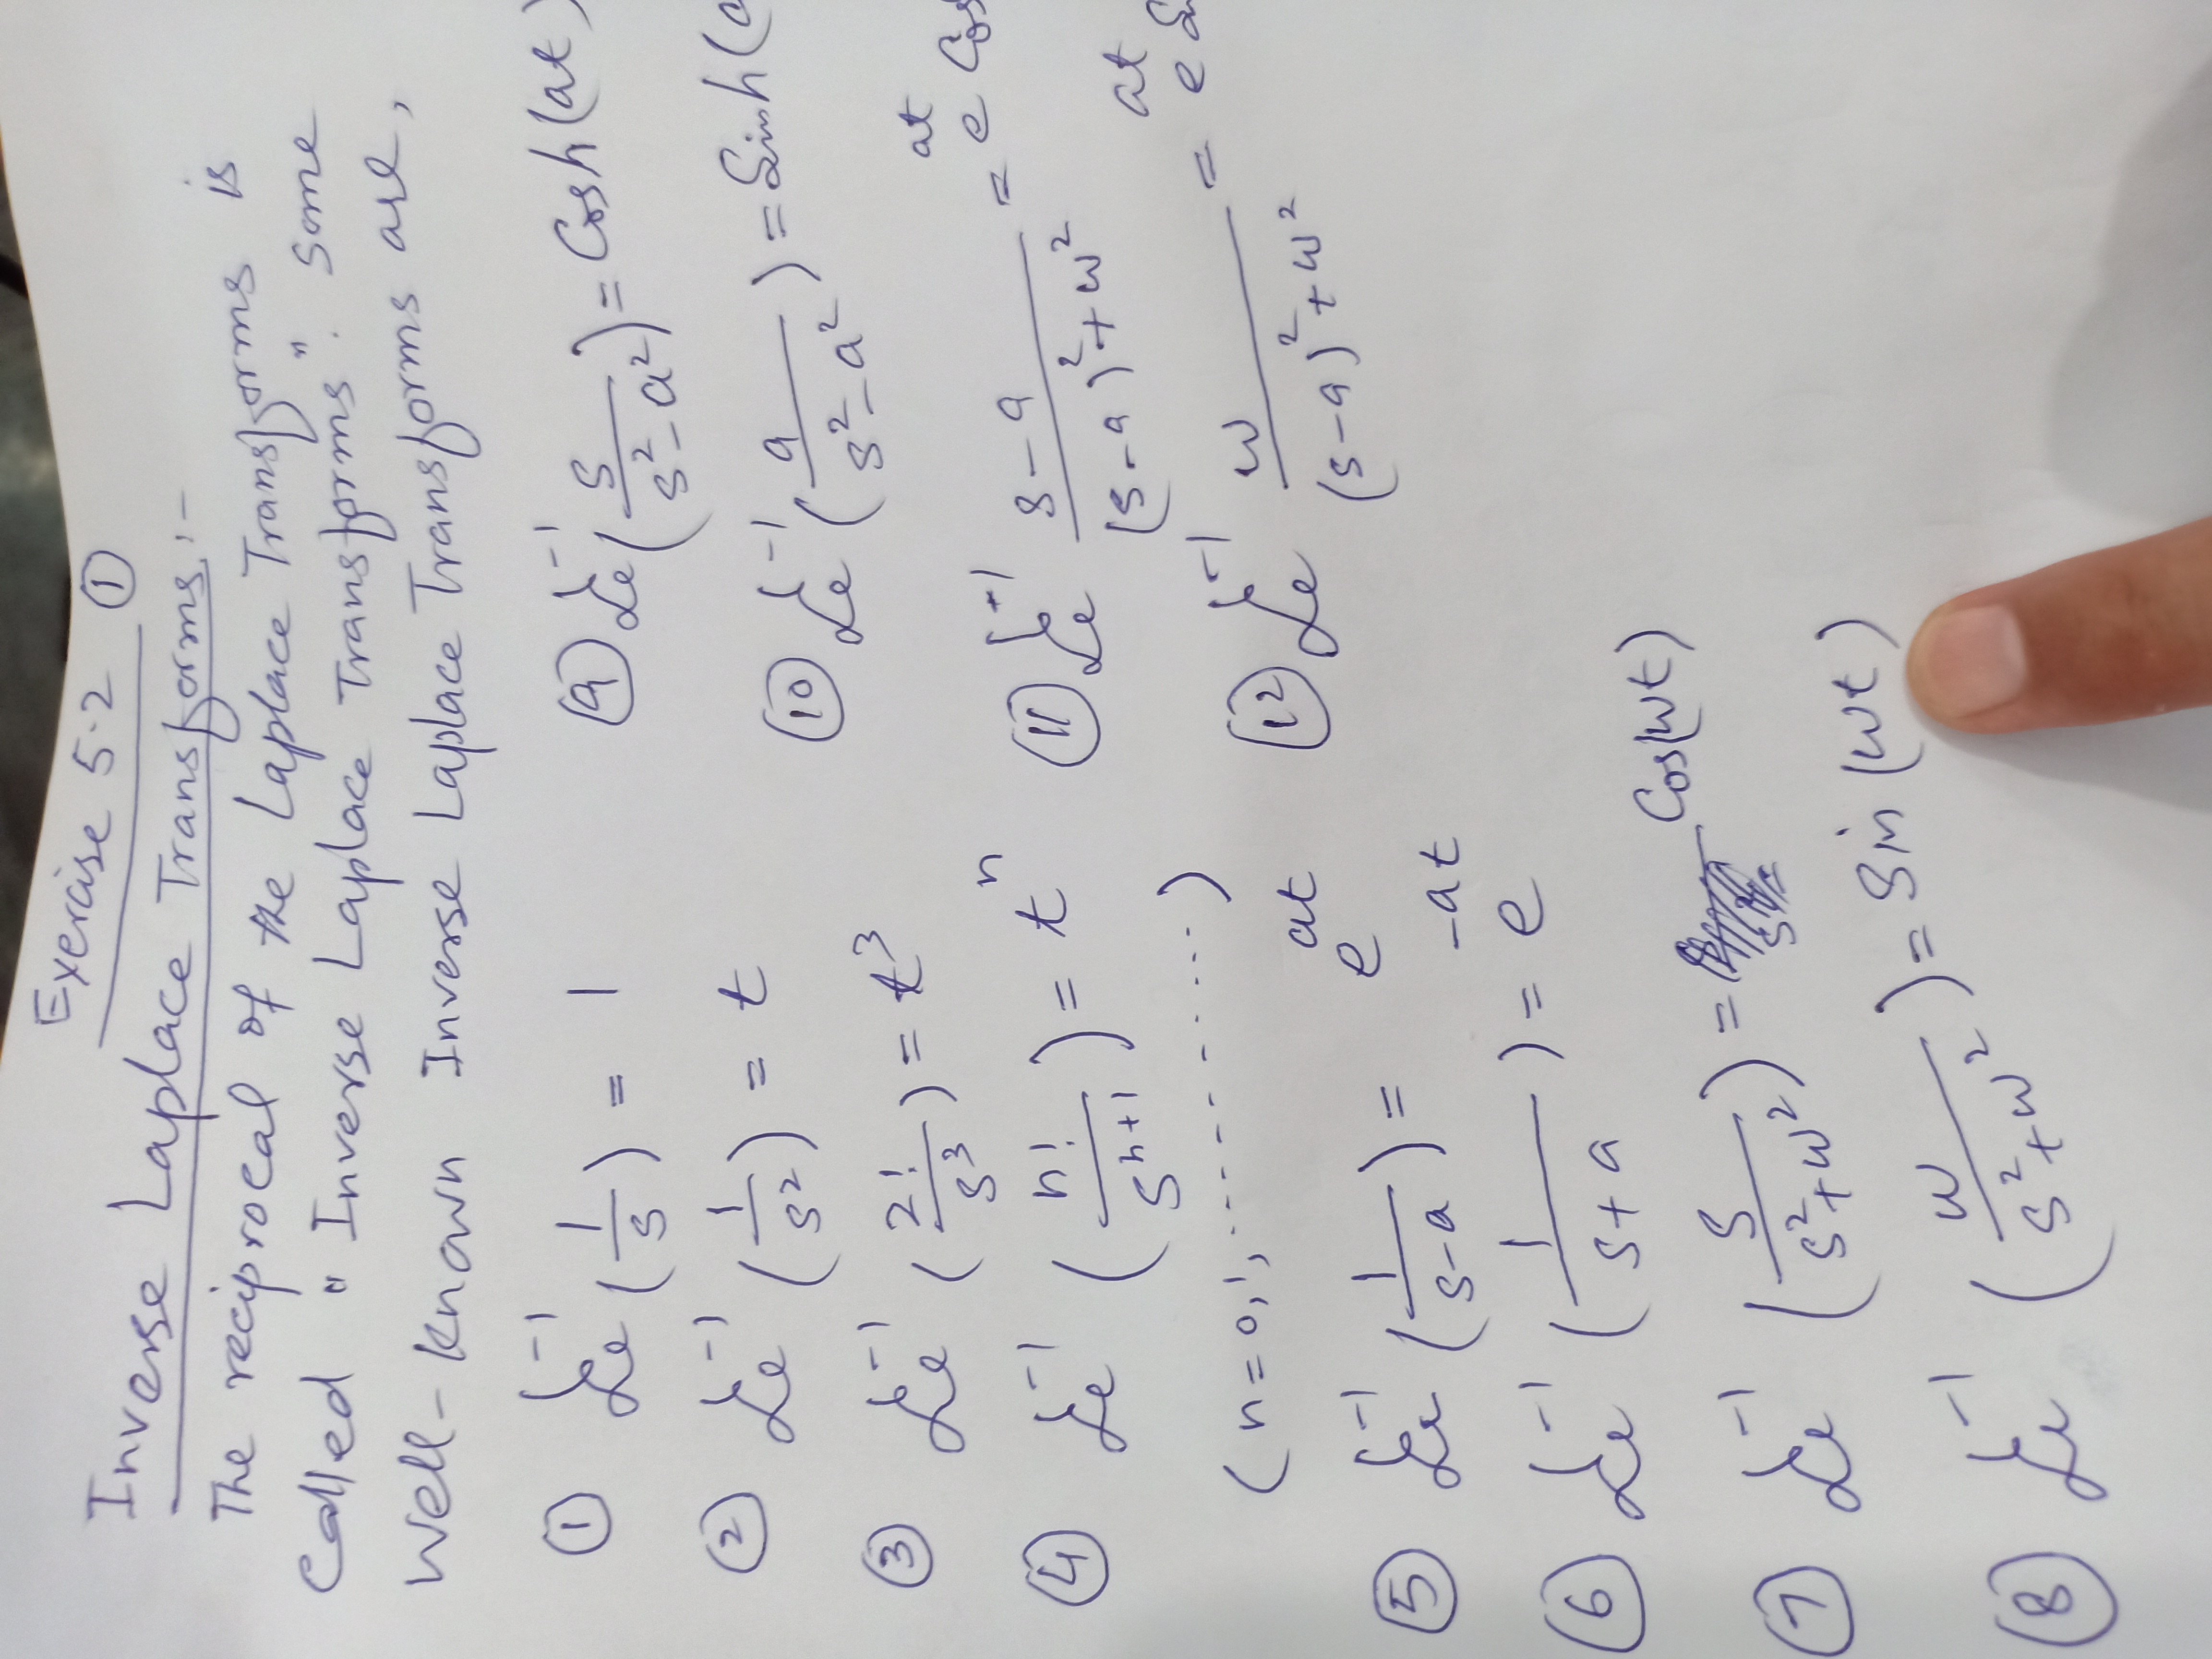 Exercise 5.2 ①
Inverse Laplace Transforms:-
The reciprocal of the Laplace Transforms is
Called "Inverse Laplace Transforms". Some
Well-Known Inverse Laplace Transforms are,
① ℒ⁻¹(1/s) = 1
② ℒ⁻¹(1/s²) = t
③ ℒ⁻¹(2!/s³) = t³
④ ℒ⁻¹(n!/sⁿ⁺¹) = tⁿ
(n=0,1,..........)
⑤ ℒ⁻¹(1/(s-a)) = e^at
⑥ ℒ⁻¹(1/(s+a)) = e^-at
⑦ ℒ⁻¹(s/(s²+w²)) = Cos(wt)
⑧ ℒ⁻¹(w/(s²+w²)) = Sin(wt)
⑨ ℒ⁻¹(s/(s²-a²)) = Cosh(at)
⑩ ℒ⁻¹(a/(s²-a²)) = Sinh(
⑪ ℒ⁻¹ (s-a)/((s-a)²+w²) = e^at Cos
⑫ ℒ⁻¹ w/((s-a)²+w²) = e^at